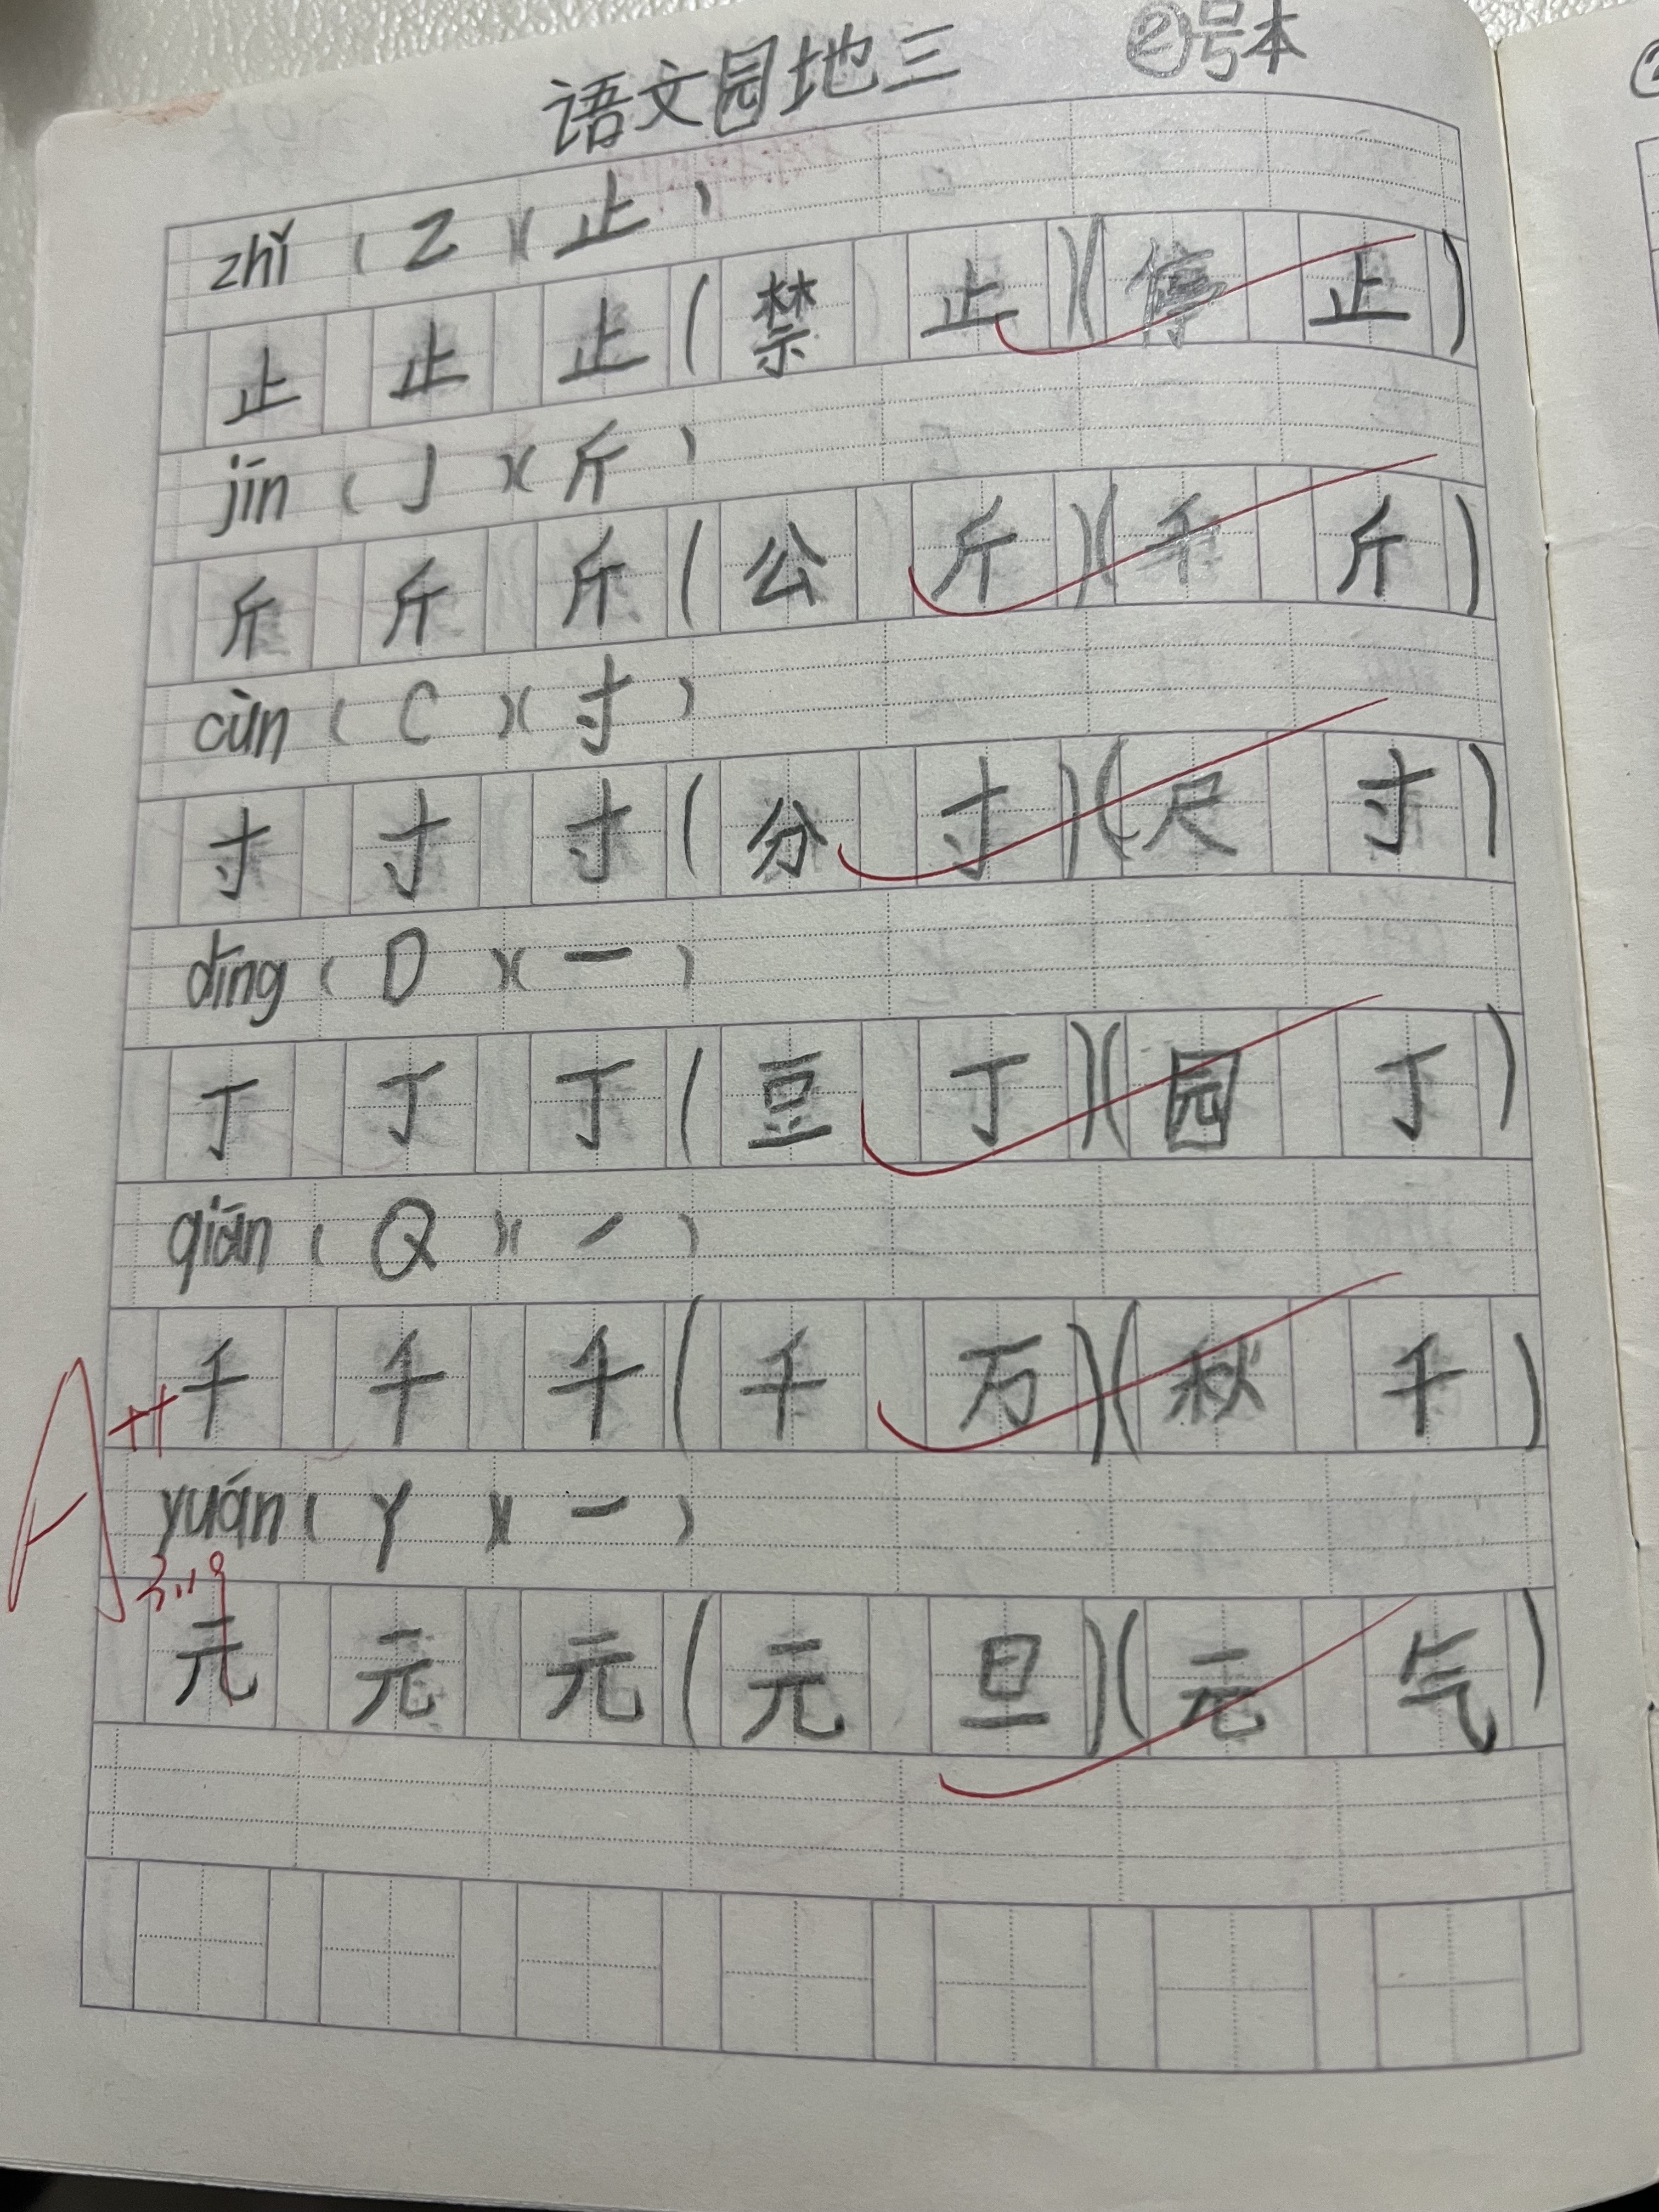 语文园地三 ②号本
zhǐ（Z）（止）
止 止 止（禁止）（停止）
jīn（J）（斤）
斤 斤 斤（公斤）（千斤）
cùn（C）（寸）
寸 寸 寸（分寸）（尺寸）
dīng（D）（一）
丁 丁 丁（豆丁）（园丁）
qiān（Q）（丿）
千 千 千（千万）（秋千）
A++
yuán（Y）（一）
3.19
元 元 元（元旦）（元气）